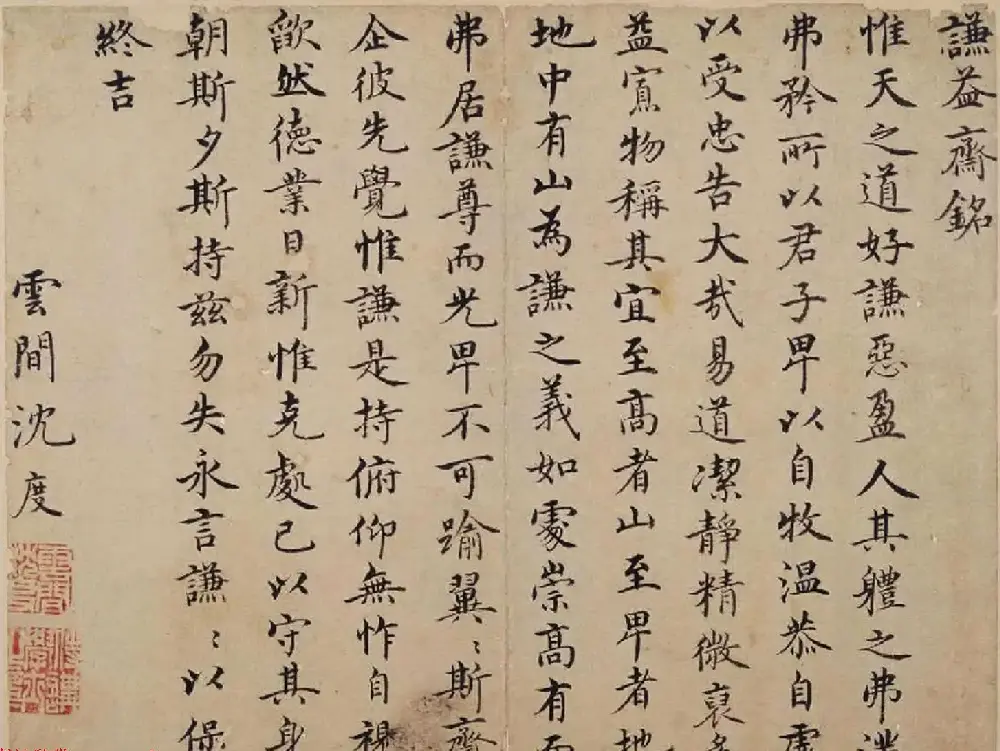 謙益齋銘
惟天之道好謙惡盈人其軆之弗
弗矜所以君子卑以自牧温恭自虛
以受忠告大哉易道潔靜精微裒多
益寡物稱其宜至高者山至卑者地
地中有山為謙之義如處崇高有而
弗居謙尊而光卑不可踰翼〻斯齋
企彼先覺惟謙是持俯仰無怍自視
歆然德業日新惟克處己以守其身
朝斯夕斯持兹勿失永言謙〻以保
終吉
雲間沈度